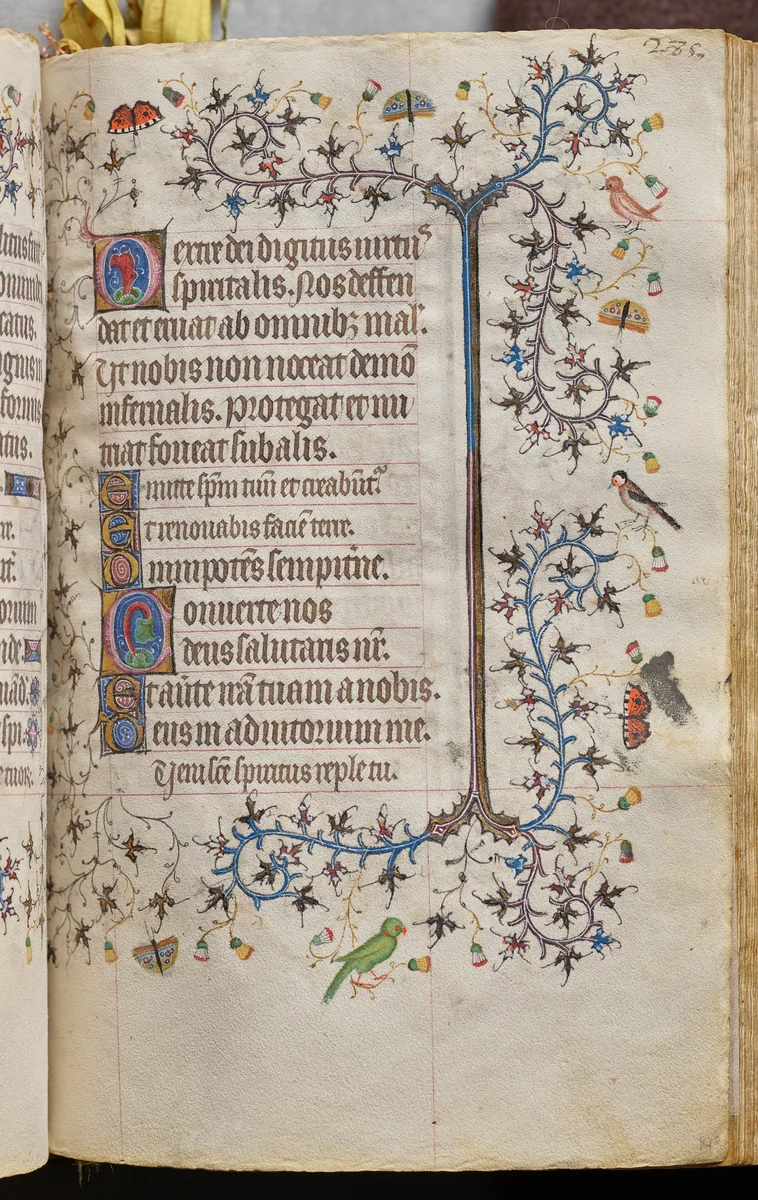 Dextre dei digitus uirtus
spiritalis. Nos deffen
dat et eruat ab omnibꝫ mal'.
Ut nobis non noceat demō
infernalis. Protegat et nu
triat foueat sub alis.
Emitte sp̄m tuū et creabūtᷓ.
Et renouabis faciē terre.
Omnipotēs sempit̄ne.
Conuerte nos
deus salutaris nr̄.
Et aūte irā tuam a nobis.
Deus in adiutorium me.
Veni sc̄e spiritus reple tu.